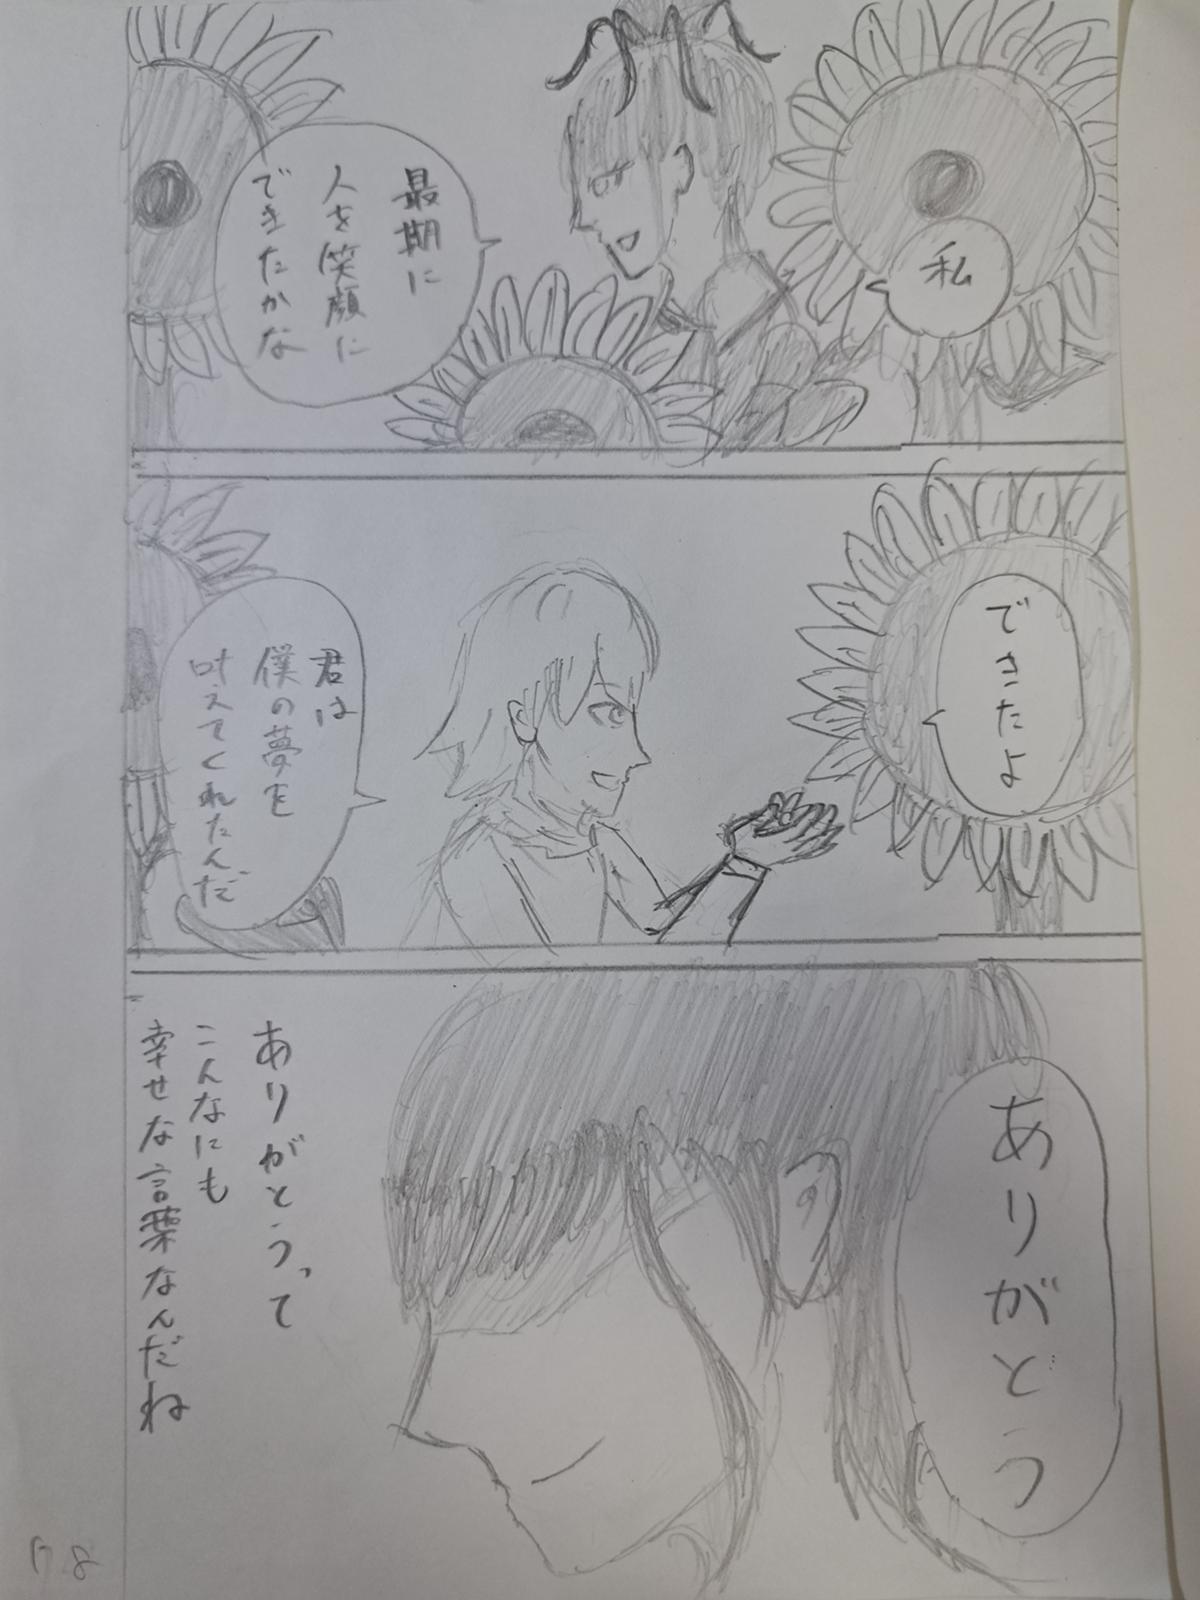 私
最期に
人を笑顔に
できたかな
できたよ
君は
僕の夢を
叶えてくれたんだ
ありがとう
ありがとうって
こんなにも
幸せな言葉なんだね